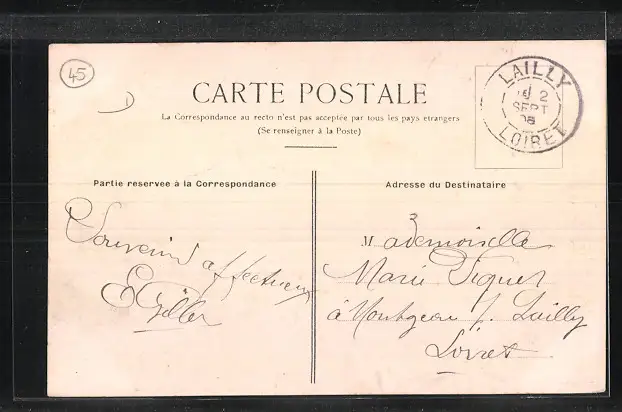 45
CARTE POSTALE
La Correspondance au recto n'est pas acceptée par tous les pays étrangers
(Se renseigner à la Poste)
LAILLY
2
SEPT
LOIRET
Partie reservée à la Correspondance
Souvenir affectueux
Adresse du Destinataire
Mademoiselle
Marie
à Montgeau p. Lailly
Loiret